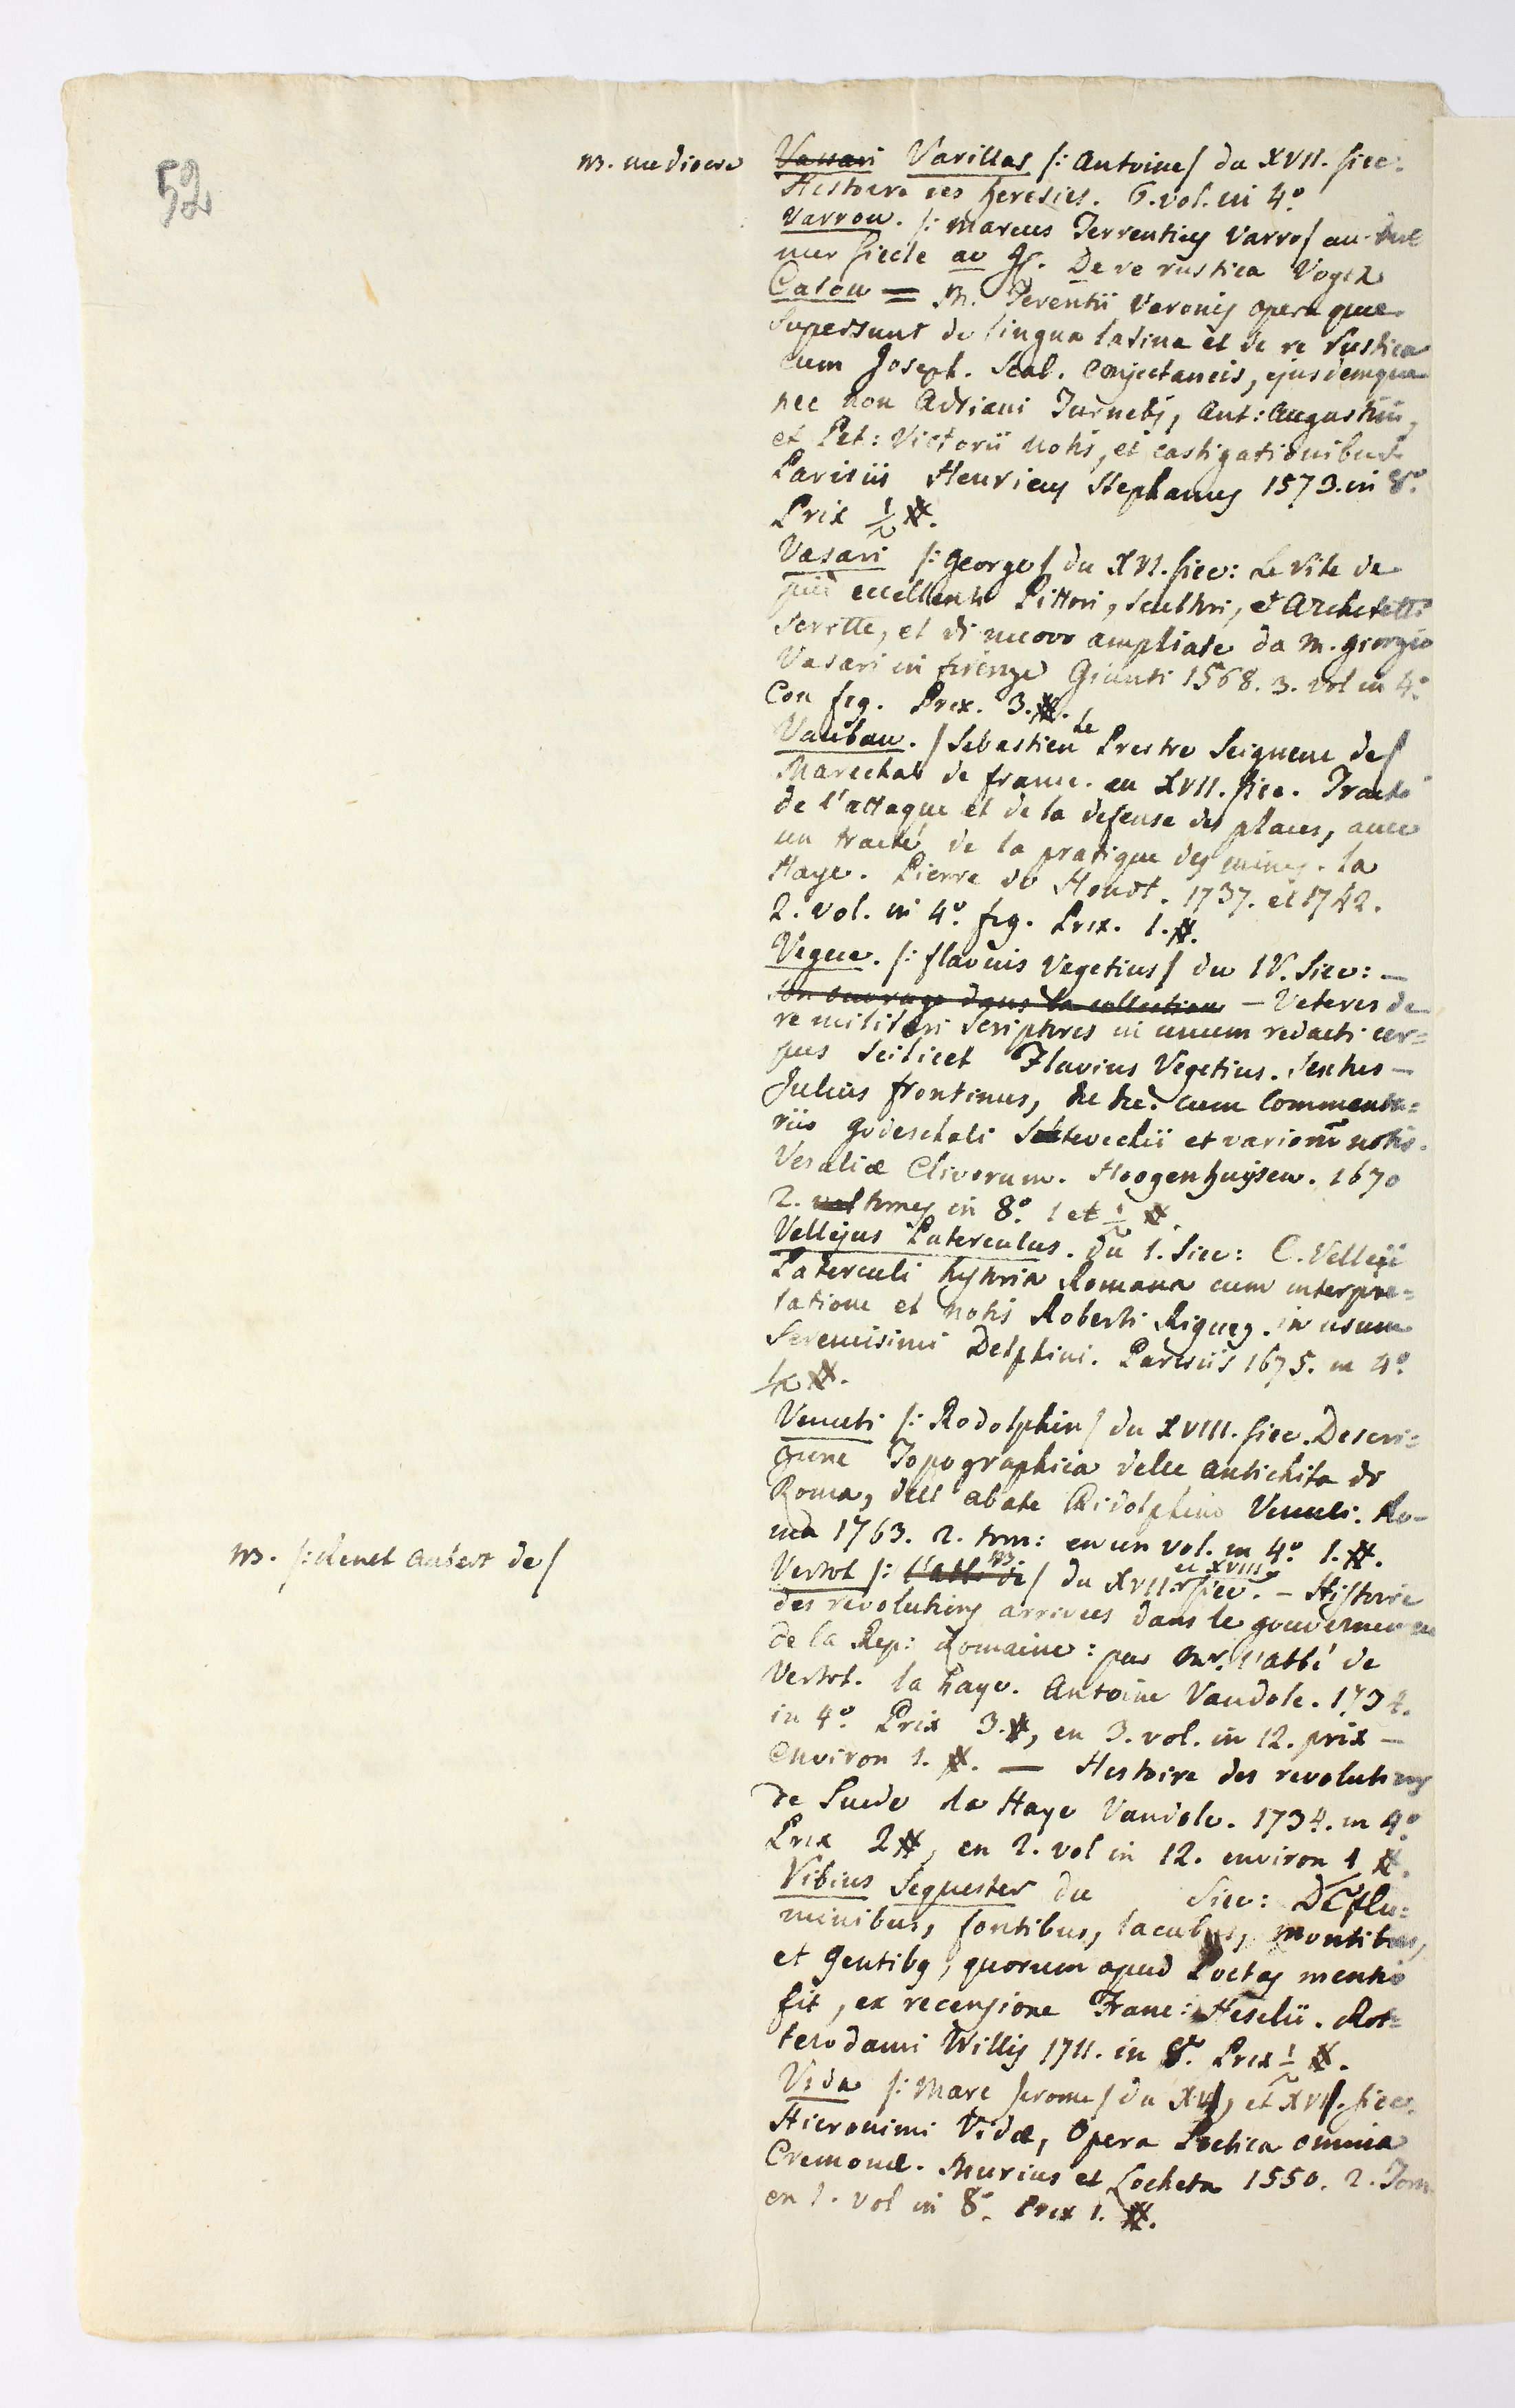 52
NB. mediocre
Vassari Varillas /: Antoine/ du XVII. siec:
Histoire des heresies. 6. vol. in 4º.
Varron. /: Marcus Terrentius Varro/ au
nier siecle av J. De re rustica Voyez
Caton = M. Terentii Varonis opera quae
supersunt de lingua latina et de re rustica
cum Joseph. Scal. Conjectaneis, ejusdemque
nec non Adriani Turnebi, Ant: Augustini,
et Pet: Victorii notis, et castigationibus
Parisiis Henricus Stephanus 1573. in 8º.
Prix ½ #.
Vasari /: George/ du XVI. siec: Le Vite de
più eccellenti Pittori, Scultori, et Architetti
scritte, et di nuovo ampliate da M. Giorgio
Vasari in firenze Giunti 1568. 3. vol in 4º.
Con fig. Prix. 3. #.
Vauban. / Sebastien le Prestre Seigneur de/
Marechal de france. au XVII. siec. Traité
de l'attaque et de la defense des places, avec
un traité de la pratique des mines. la
Haye. Pierre de Hondt. 1737. et 1742.
2. vol. in 4º. fig. Prix. 1. #.
Vegece. /: flavius Vegetius/ du IV. Siec: —
Son ouvrage dans la collection — Veteres de
re militari Scriptores in unum redacti cor=
pus scilicet Flavius Vegetius. Sextus —
Julius frontinus, &c &c. cum Commenta=
riis Godeschali Stewechii et variorum notis.
Vesaliæ Clivorum. Hoogenhuÿsen. 1670
2. vol tomes in 8º. 1 et ½ #.
Vellejus Paterculus. du 1. Siec: C. Velleji
Paterculi hystoria Romana cum interpre=
tatione et notis Roberti Riguez. in usum
Serenissimi Delphini. Parisiis 1675. in 4º.
½ #.
Venuti /: Rodolphin/ du XVIII. siec. Descri=
zione Topographica delle antichita di
Roma, dell' abate Ridolphino Venuti. Ro-
ma 1763. 2. tom: en un vol. in 4º. 1. #.
NB. /: Renet Aubert de/
Vertot /: l'abbé de NB./ du XVII. et XVIII. siec. — Histoire
des revolutions arrivees dans le gouvernement
de la Rep: Romaine: par Mr. l'abbé de
Vertot. la haye. Antoine Vandole. 1734.
in 4º. Prix 3. #, en 3. vol. in 12. prix —
environ 1. #. — Histoire des revolutions
de Suede la Haye Vandole. 1734. in 4º.
Prix 2 #, en 2. vol in 12. environ 1 #.
Vibius Sequester du Siec: De flu=
minibus, fontibus, lacubus, montibus,
et Gentibus, quorum apud Poetas mentio
fit, ex recensione Franc: Heselii. Rot=
terodami Willis 1711. in 8º. Prix ½ #.
Vida /: Marc Jerome/ du XV, et XVI. siec.
Hieronimi Vidæ, Opera Poetica omnia
Cremonæ. Murius et Locheta 1550. 2. Tom.
en 1. vol in 8º. Prix 1. #.